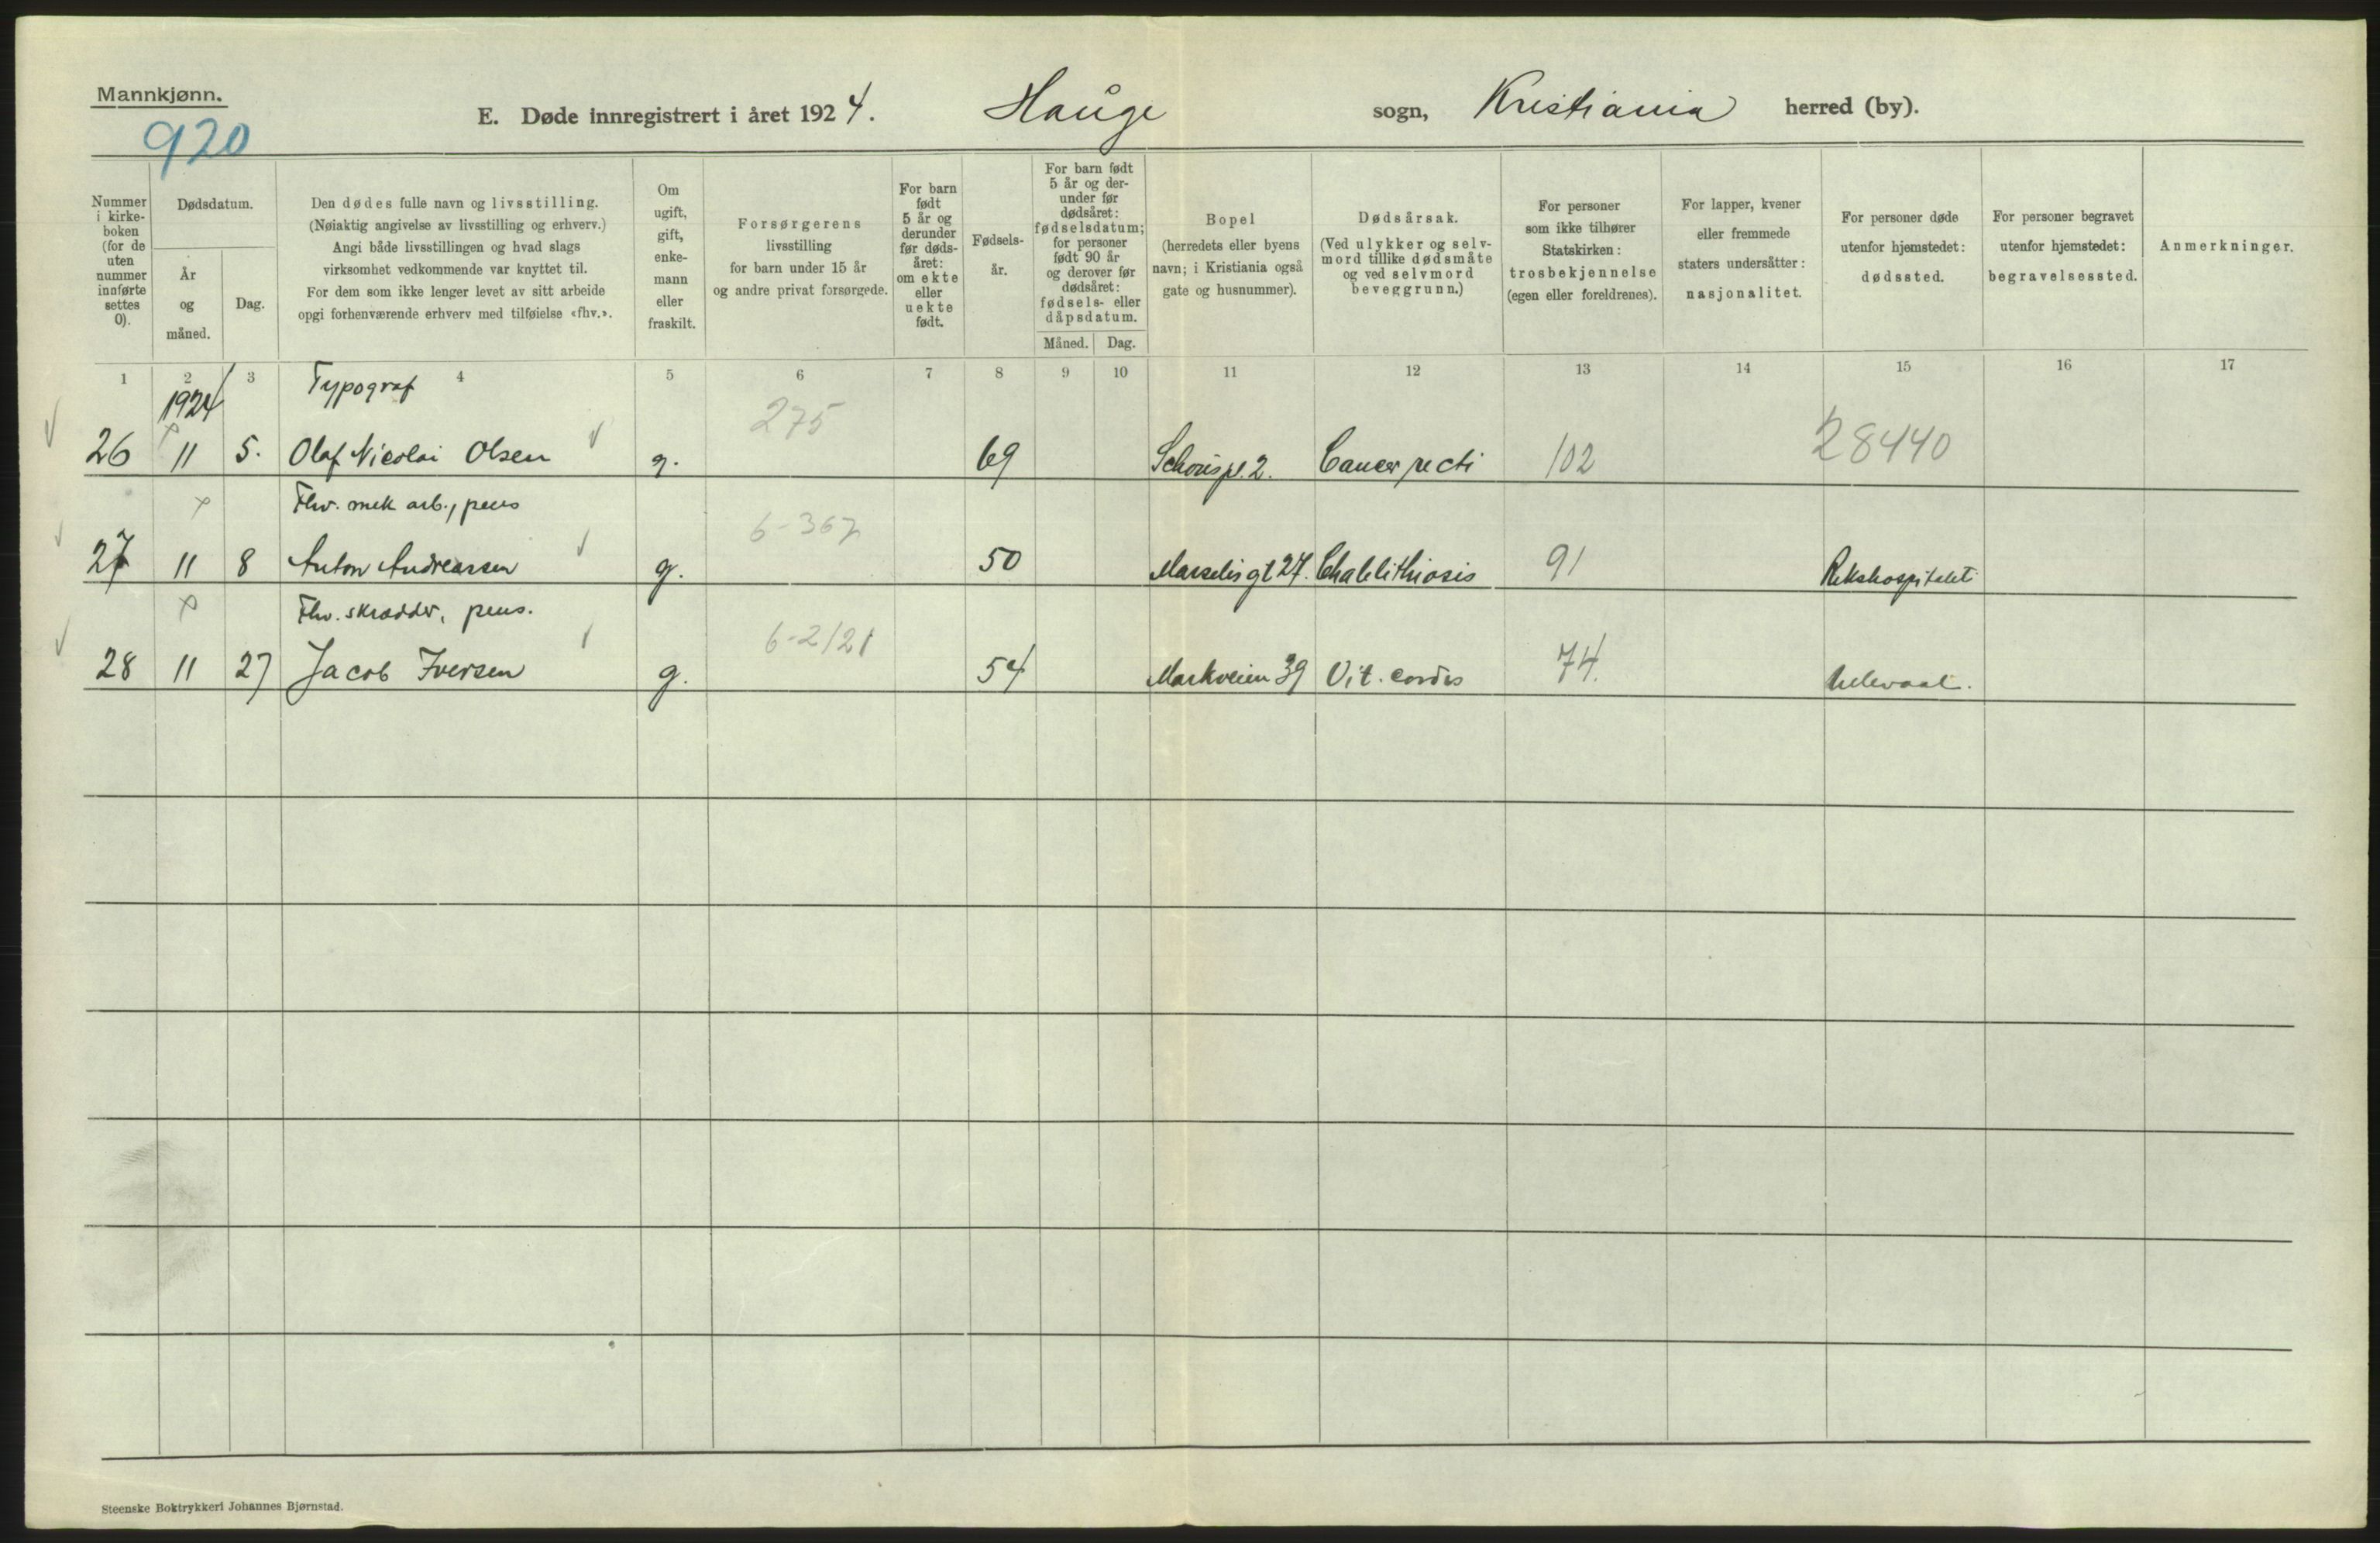 Mannkjønn.
920
E. Døde innregistrert i året 1924. Hauge sogn, Kristiania herred (by).
Nummer i kirke- boken (for de uten nummer innførte settes 0).
Dødsdatum.
År og måned.
Dag.
Den dødes fulle navn og livsstilling.
(Nøiaktig angivelse av livsstilling og erhverv.)
Angi både livsstillingen og hvad slags
virksomhet vedkommende var knyttet til.
For dem som ikke lenger levet av sitt arbeide
opgi forhenværende erhverv med tilføielse «fhv.».
Om ugift, gift, enke- mann eller fraskilt.
Forsørgerens
livsstilling
for barn under 15 år
og andre privat forsørgede.
For barn født 5 år og derunder før døds- året: om ekte eller uekte født.
Fødsels- år.
For barn født 5 år og der- under før dødsåret: fødselsdatum; for personer født 90 år og derover før dødsåret: fødsels- eller dåpsdatum.
Måned. Dag.
Bopel
(herredets eller byens
navn; i Kristiania også
gate og husnummer).
Dødsårsak.
(Ved ulykker og selv-
mord tillike dødsmåte
og ved selvmord
beveggrunn.)
For personer
som ikke tilhører
Statskirken:
trosbekjennelse
(egen eller foreldrenes).
For lapper, kvener
eller fremmede
staters undersåtter:
nasjonalitet.
For personer døde
utenfor hjemstedet:
dødssted.
For personer begravet
utenfor hjemstedet:
begravelsessted.
Anmerkninger.
1 2 3 4 5 6 7 8 9 10 11 12 13 14 15 16 17
1924 Typograf 275
26 11 5. Olaf Nicolai Olsen g. 69 Schouspl. 2. Cancer recti 102 28440
Fhv. mek arb., pens 6-367
27 11 8 Anton Andreassen g. 50 Marselisgt 27. Cholelithiasis 91 Rikshospitalet
Fhv. skrædder, pens. 6-2/21
28 11 27 Jacob Iversen g. 54 Markveien 39 Vit. cordis 74. Ullevaal.
Steenske Boktrykkeri Johannes Bjørnstad.